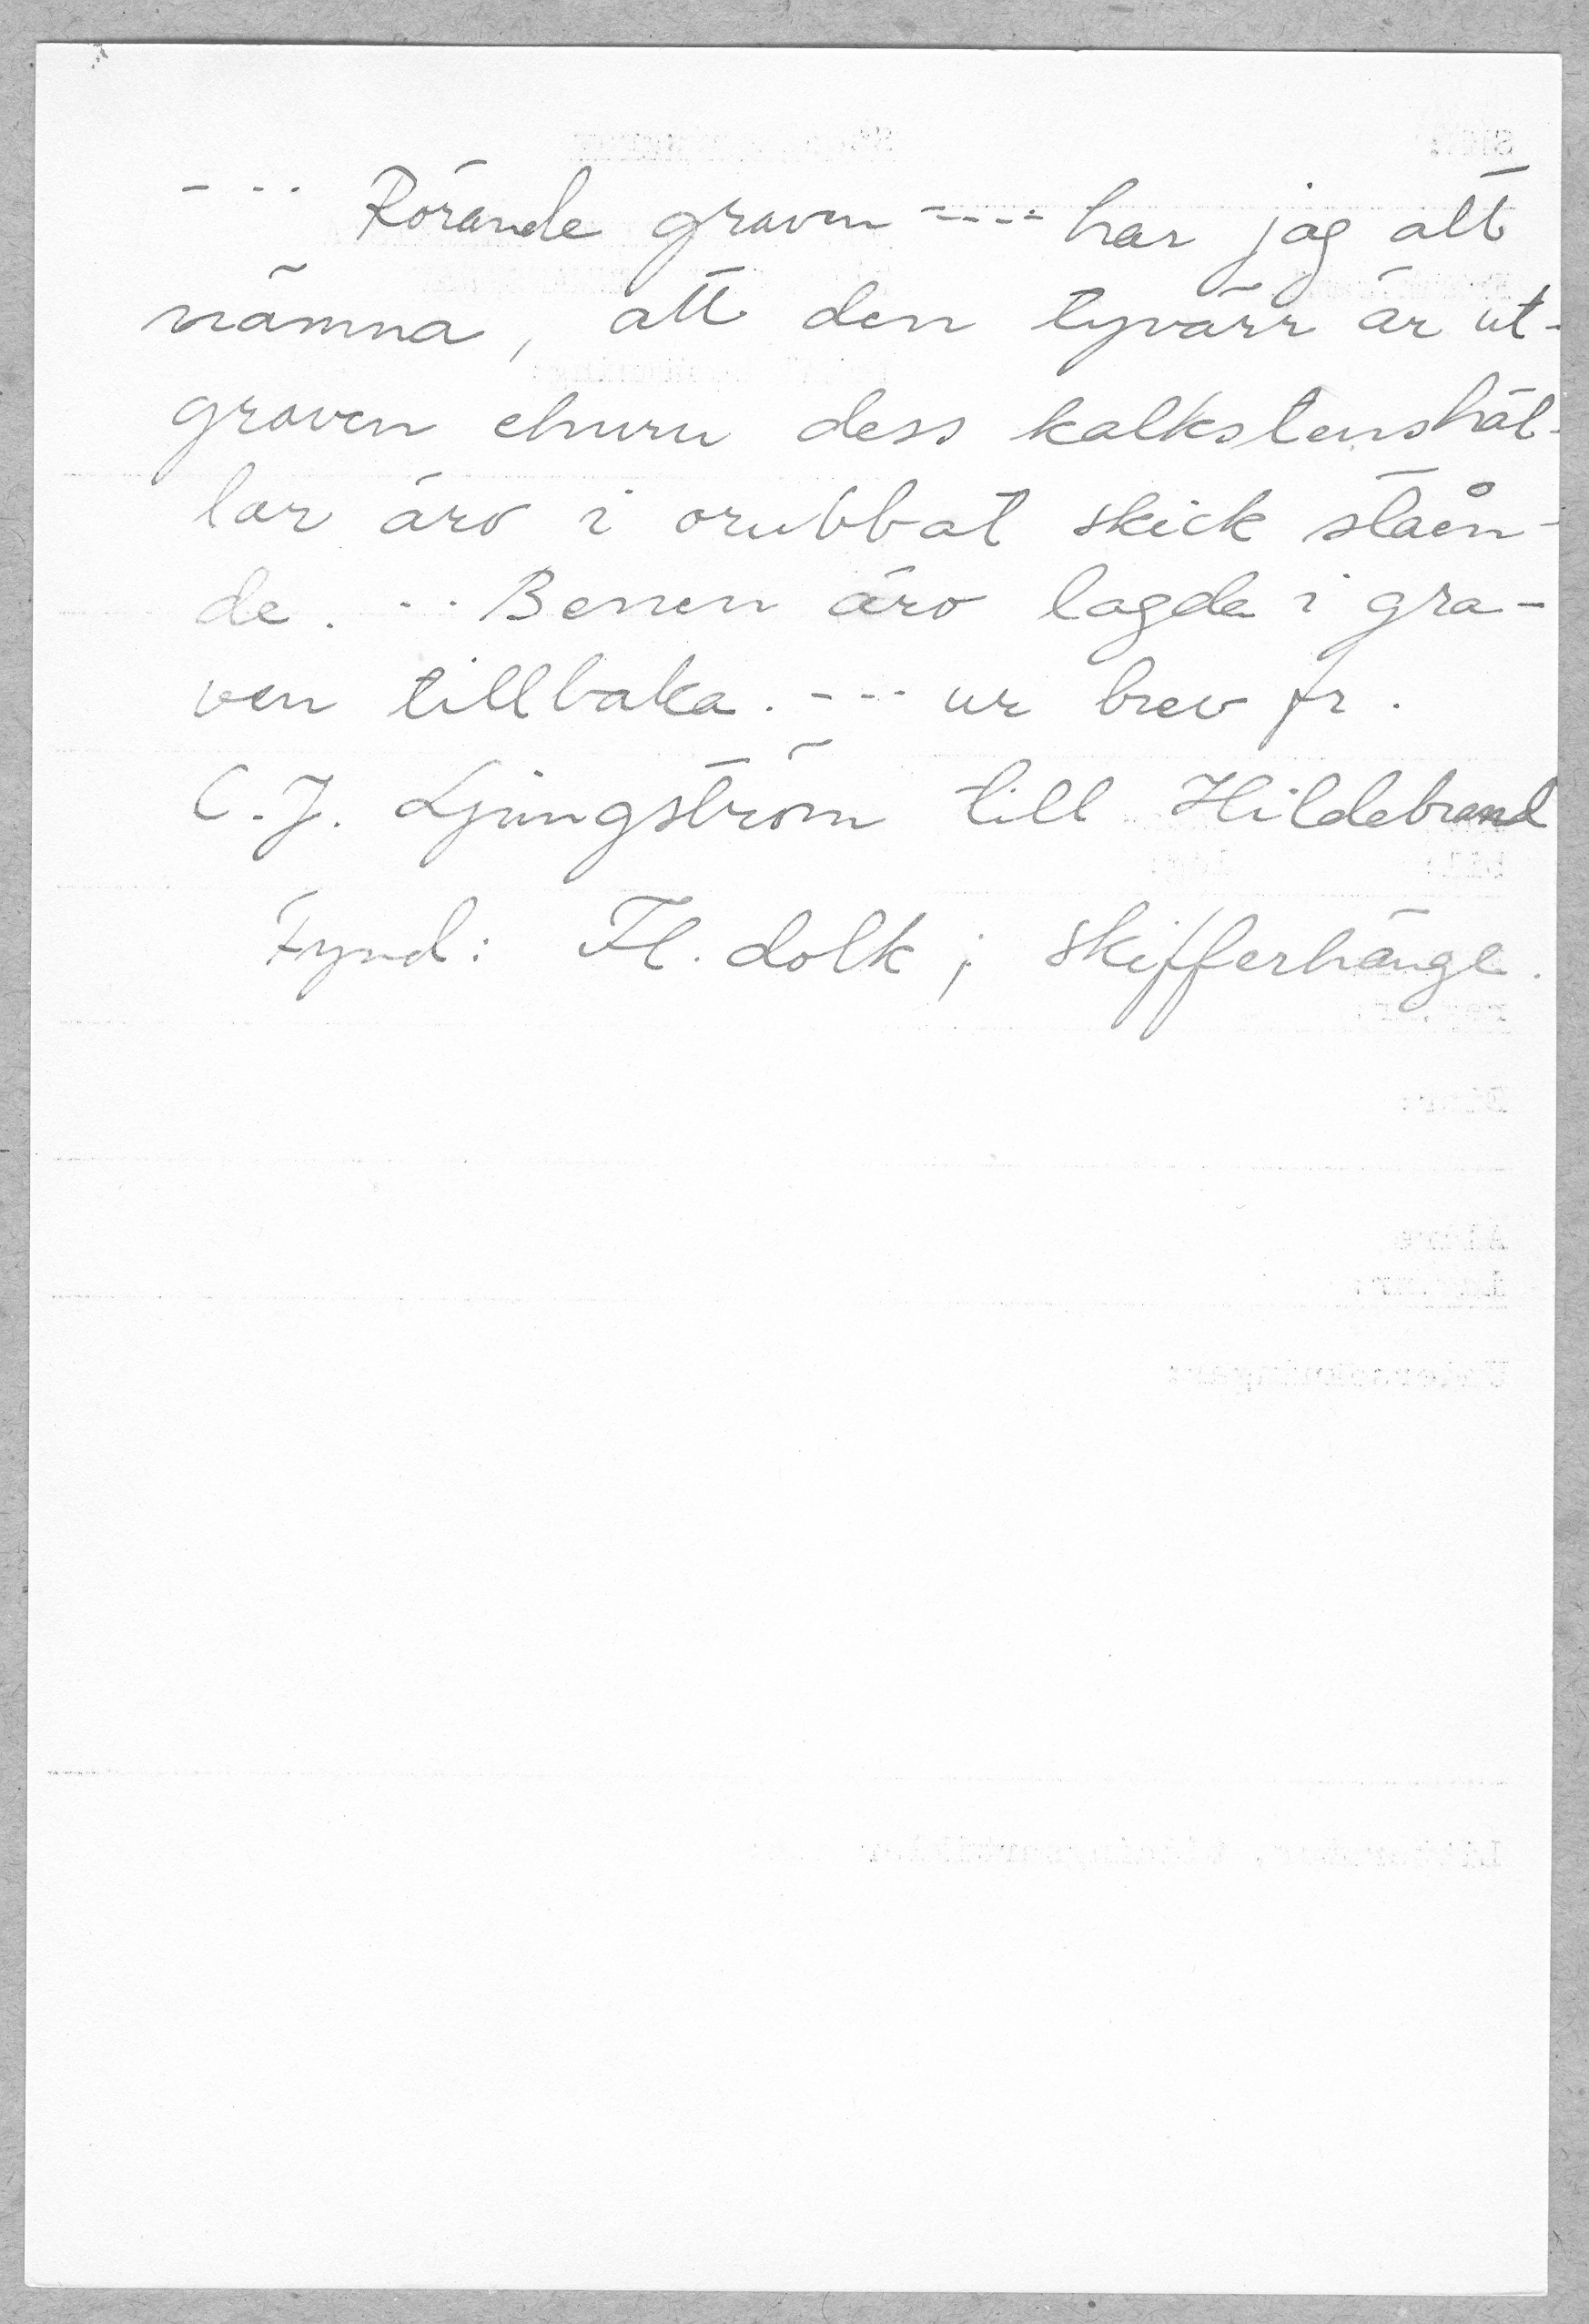 - - - Rörande graven ---- har jag att
nämna, att den tyvärr är ut-
graven ehuru dess kalkstenshäl-
lar äro i orubbat skick ståen-
de. -- Benen äro lagda i gra-
ven tillbaka. --- ur brev fr.
C.J. Ljungström till Hildebrand
Fynd: Fl. dolk; skifferhänge.